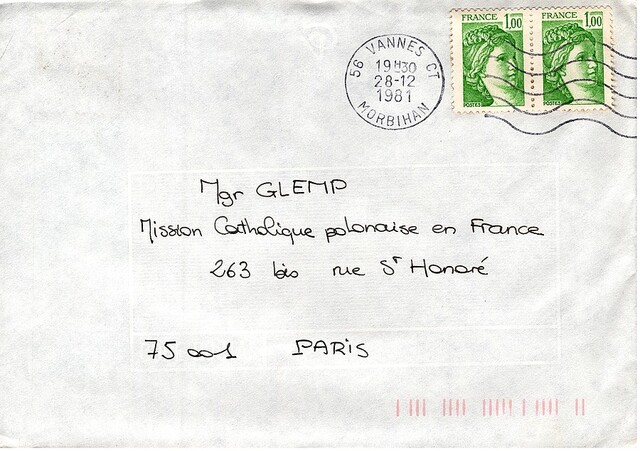 FRANCE 1,00 FRANCE 1,00
POSTES POSTES
56 VANNES CT
19H30
28-12
1981
MORBIHAN
Mgr GLEMP
Mission Catholique polonaise en France
263 bis rue St Honoré
75001 PARIS